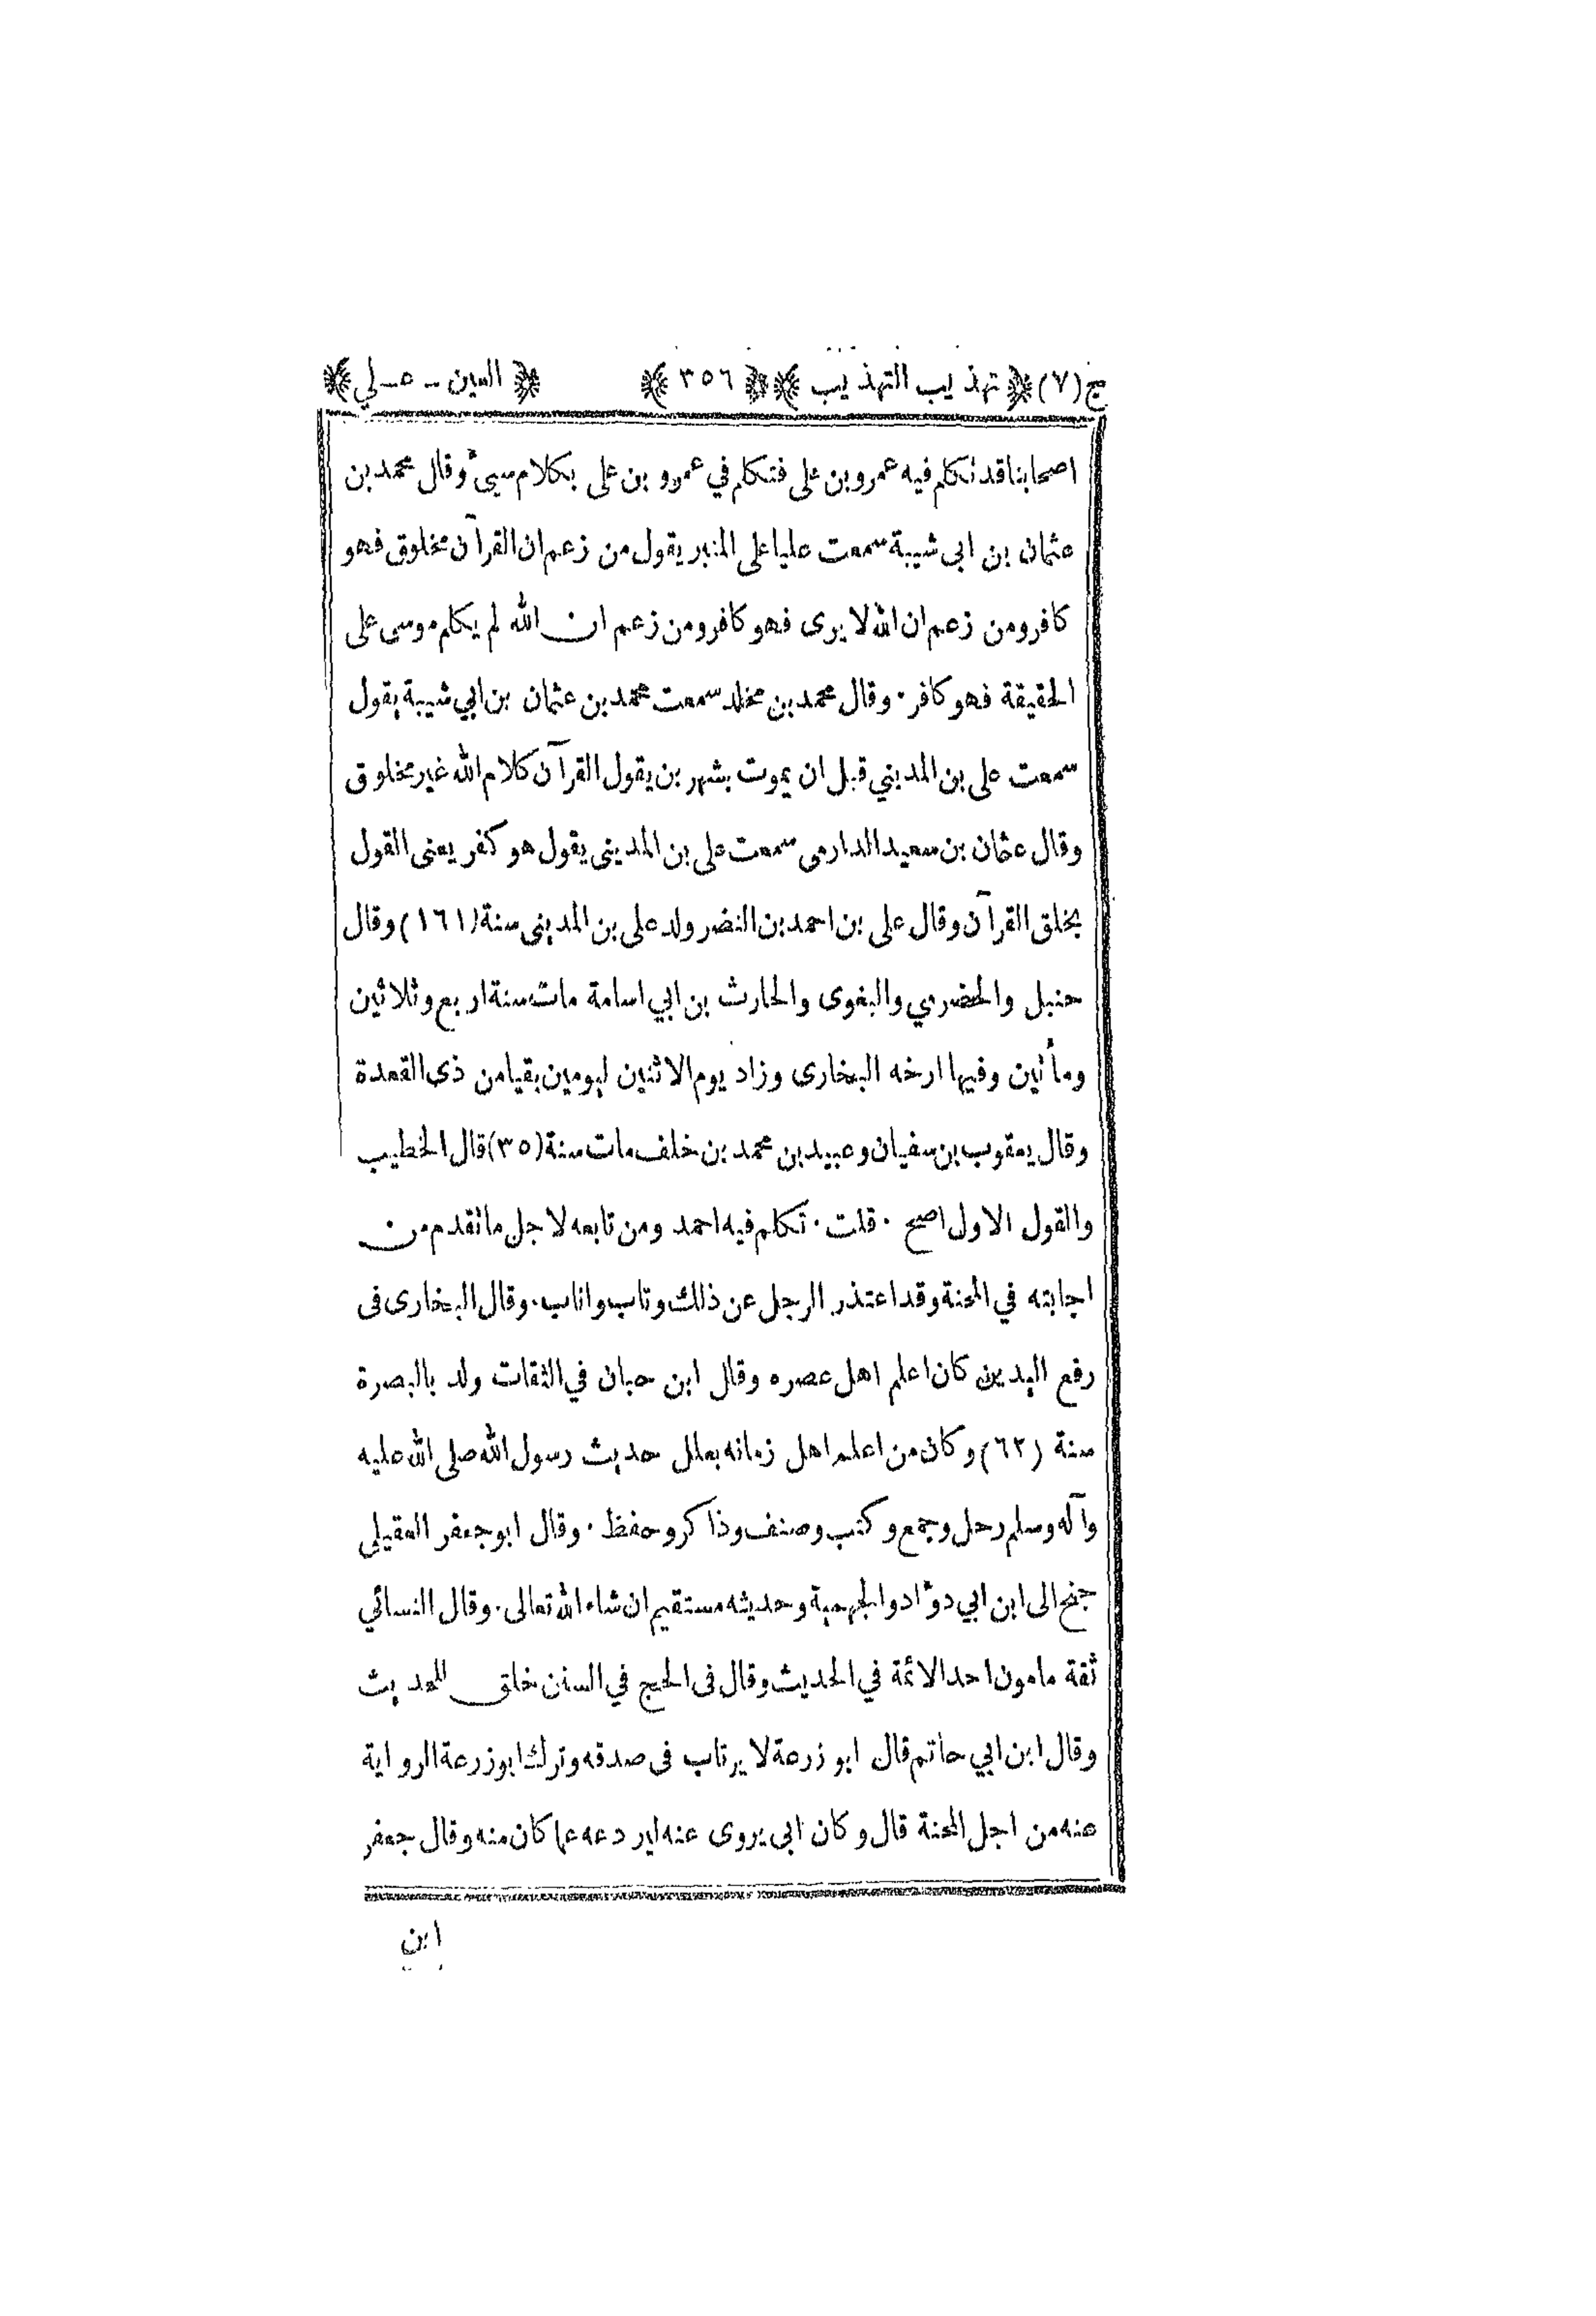 ج (٧) ﴿ تهذيب التهذيب ﴾ ﴿ ٣٥٦ ﴾ ﴿ العين - ه - لي ﴾
اصحابنا قد تكلم فيه عمرو بن على فتكلم في عمرو بن على بكلام سيئ وقال محمد بن
عثمان بن ابى شيبة سمعت عليا على المنبر يقول من زعم ان القرآن مخلوق فهو
كافر ومن زعم ان الله لا يرى فهو كافر ومن زعم ان الله لم يكلم موسى على
الحقيقة فهو كافر · وقال محمد بن مخلد سمعت محمد بن عثمان بن ابي شيبة يقول
سمعت على بن المديني قبل ان يموت بشهرين يقول القرآن كلام الله غير مخلوق
وقال عثمان بن سعيد الدارمى سمعت على بن المدينى يقول هو كفر يعنى القول
بخلق القرآن وقال على بن احمد بن النضر ولد على بن المدينى سنة (١٦١) وقال
حنبل والحضرمي والبغوى والحارث بن ابي اسامة مات سنة اربع وثلاثين
ومأتين وفيها ارخه البخارى وزاد يوم الاثنين ليومين بقيا من ذى القعدة
وقال يعقوب بن سفيان وعبيد بن محمد بن خلف مات سنة (٣٥) قال الخطيب
والقول الاول اصح · قلت · تكلم فيه احمد ومن تابعه لاجل ما تقدم من
اجابته في المحنة وقد اعتذر الرجل عن ذلك وتاب واناب · وقال البخارى فى
رفع اليدين كان اعلم اهل عصره وقال ابن حبان في الثقات ولد بالبصرة
سنة (٦٢) وكان من اعلم اهل زمانه بعلل حديث رسول الله صلى الله عليه
وآله وسلم رحل وجمع وكتب وصنف وذاكر وحفظ · وقال ابو جعفر العقيلى
جنح الى ابن ابي دؤاد والجهمية وحديثه مستقيم ان شاء الله تعالى · وقال النسائي
ثقة مامون احد الائمة في الحديث وقال فى الحج في السنن خلق للحديث
وقال ابن ابي حاتم قال ابو زرعة لا يرتاب فى صدقه وترك ابو زرعة الرواية
عنه من اجل المحنة قال وكان ابى يروى عنه لنزوعه عما كان منه وقال جعفر
ابن